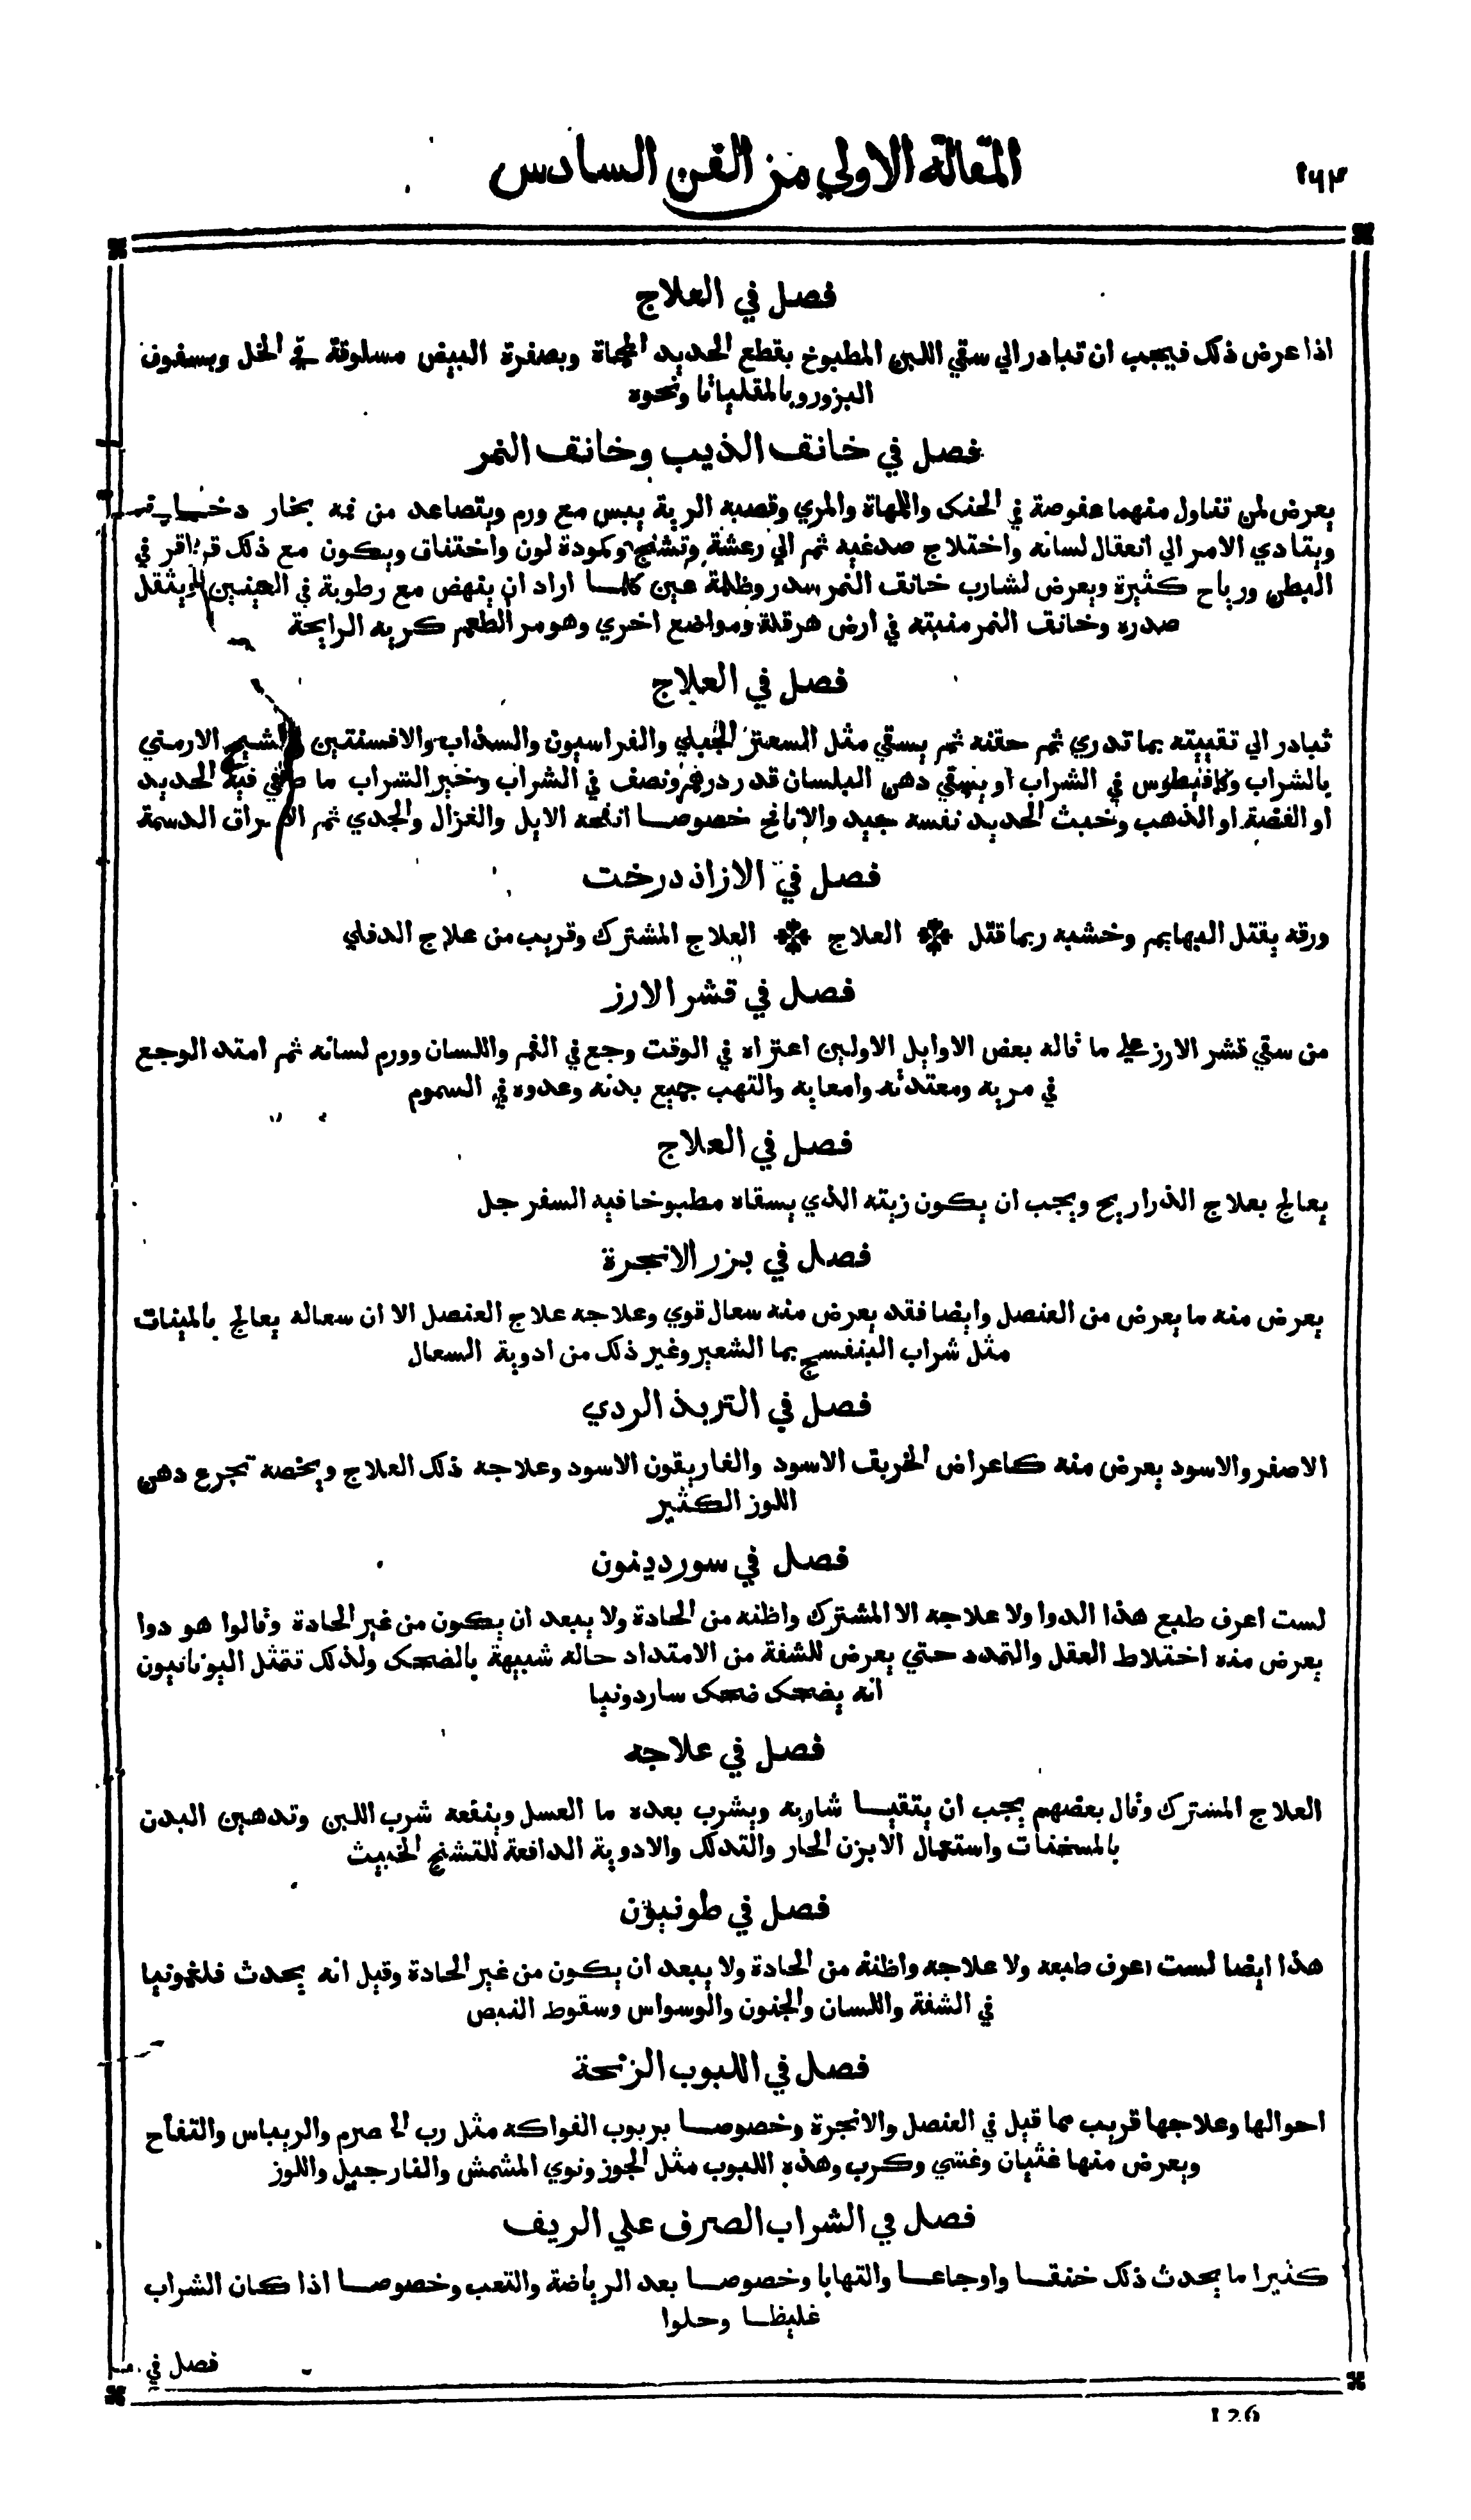 ١٦٣
المقالة الاولي من الفن السادس
فصل في العلاج
اذا عرض ذلك فيجب ان تبادر الي سقي اللبن المطبوخ بقطع الحديد المحماة وبصفرة البيض مسلوقة في الخل ويسفون
البزور وبالمقلياثا ونحوه
فصل في خانق الذيب وخانق النمر
يعرض لمن تناول منهما عفوصة في الحنك واللهاة والمري وقصبه الرية يبس مع ورم ويتصاعد من فيه بخار
ويتادي الامر الي انعقال لسانه واختلاج صدغيه ثم الي رعشة وتشنج وكمودة لون واختناق ويكون مع ذلك قراقر في
البطن ورياح كثيرة ويعرض لشارب خانق النمر سدر وظلمة عين كلما اراد ان ينهض مع رطوبة في العينين ويثقل
صدره وخانق النمر منبته في ارض هرقلة ومواضع اخري وهو مر الطعم كريه الرايحة
فصل في العلاج
تبادر الي تقييته بما تدري ثم حقنه ثم يسقي مثل السعتر الجبلي والفراسيون والسذاب والافسنتين والشيح الارمني
بالشراب وكمافيطوس في الشراب او يسقي دهن البلسان قدر درهم ونصف في الشراب وخير الشراب ما طفي فيه الحديد
او الفضة او الذهب وخبث الحديد نفسه جيد والانافح خصوصا انفحه الايل والغزال والجدي ثم الامراق الدسمة
فصل في الازاذ درخت
ورقه يقتل البهايم وخشبه ربما قتل ❊ العلاج ❊ العلاج المشترك وقريب من علاج الدفلي
فصل في قشر الارز
من سقي قشر الارز علي ما قاله بعض الاوايل الاولين اعتراه في الوقت وجع في الفم واللسان وورم لسانه ثم امتد الوجع
في مريه ومعتدته وامعايه والتهب جميع بدنه وعدوه في السموم
فصل في العلاج
يعالج بعلاج الذراريح ويجب ان يكون زيته الذي يسقاه مطبوخا فيه السفرجل
فصل في بزر الانجرة
يعرض منه ما يعرض من العنصل وايضا فقد يعرض منه سعال قوي وعلاجه علاج العنصل الا ان سعاله يعالج بالمينات
مثل شراب البنفسج بما الشعير وغير ذلك من ادوية السعال
فصل في التربذ الردي
الاصفر والاسود يعرض منه كاعراض الخربق الاسود والغاريقون الاسود وعلاجه ذلك العلاج ويخصه تجرع دهن
اللوز الكثير
فصل في سوردينون
لست اعرف طبع هذا الدوا ولا علاجه الا المشترك واظنه من الحادة ولا يبعد ان يكون من غير الحادة وقالوا هو دوا
يعرض منه اختلاط العقل والتمدد حتي يعرض للشفة من الامتداد حاله شبيهة بالضحك ولذلك تتمثل اليونانيون
انه يضحك ضحك ساردونيا
فصل في علاجه
العلاج المشترك وقال بعضهم يجب ان يتقيا شاربه ويشرب بعده ما العسل وينفعه شرب اللبن وتدهين البدن
بالمسخنات واستعمال الابزن الحار والتدلك والادوية الدافعة للتشنج الخبيث
فصل في طونيون
هذا ايضا لست اعرف طبعه ولا علاجه واظنه من الحادة ولا يبعد ان يكون من غير الحادة وقيل انه يحدث فلغمونيا
في الشفة واللسان والجنون والوسواس وسقوط النبص
فصل في اللبوب الزنخة
احوالها وعلاجها قريب مما قيل في العنصل والانجرة وخصوصا بربوب الفواكه مثل رب الحصرم والريباس والتفاح
ويعرض منها غثيان وغشي وكرب وهذه اللبوب مثل الجوز ونوي المشمش والنارجيل واللوز
فصل في الشراب الصرف علي الريف
كثيرا ما يحدث ذلك خنقا واوجاعا والتهابا وخصوصا بعد الرياضة والتعب وخصوصا اذا كان الشراب
غليظا وحلوا
فصل في
126